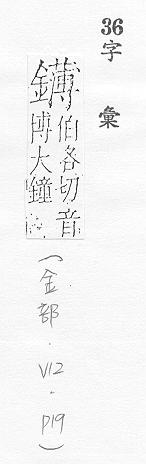 36字彙
鑮伯各切音博大鐘
(金部.V12.P19)